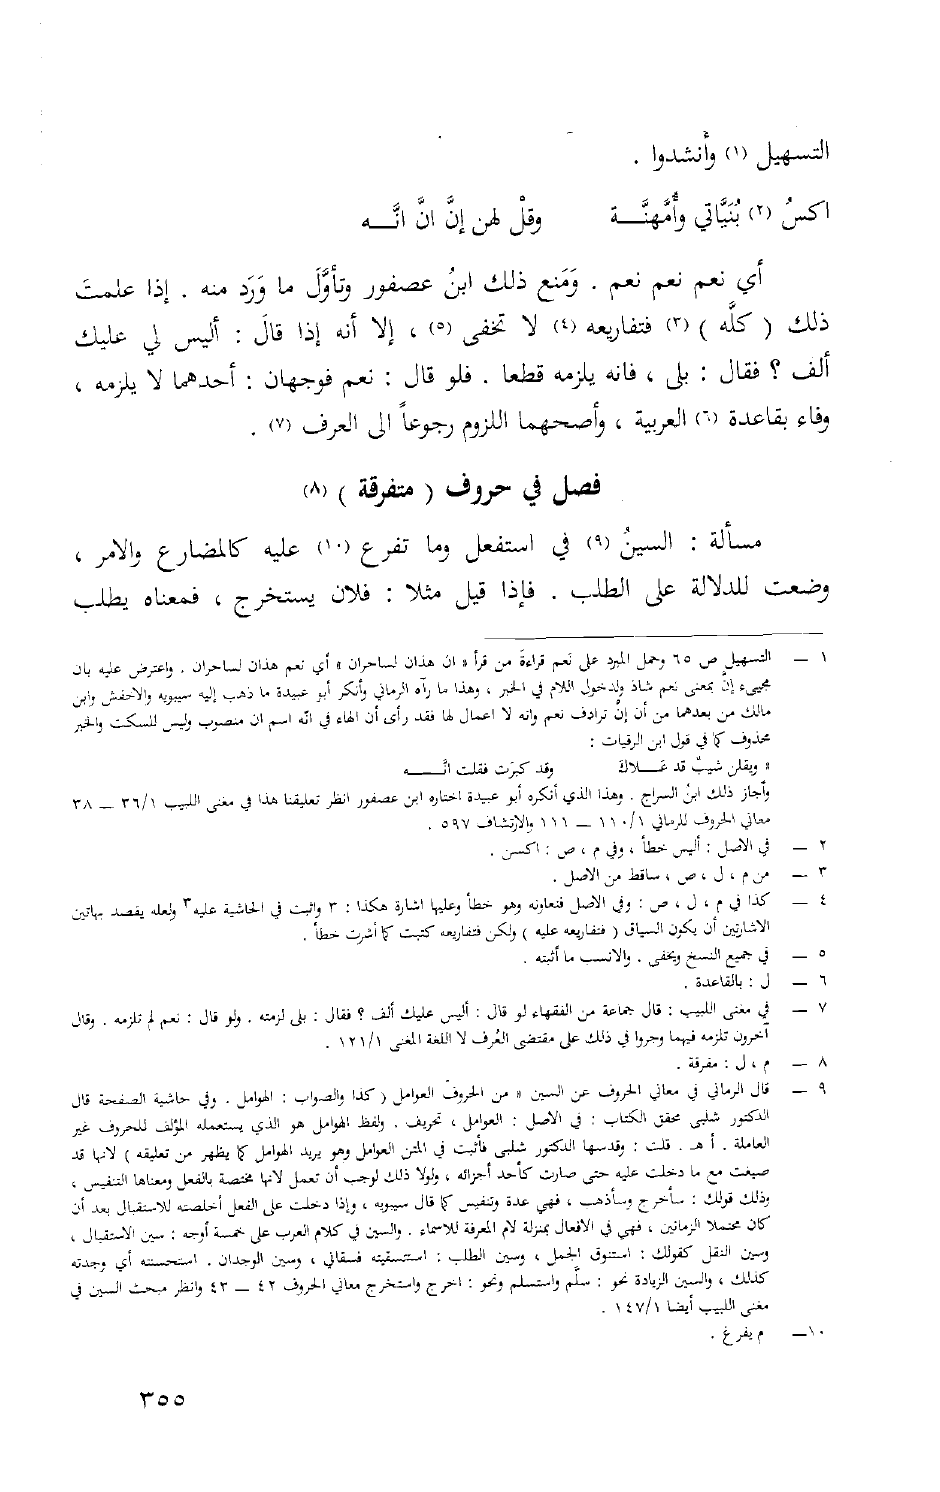 التسهيل (١) وأنشدوا .
اكسُ (٢) بُنَيَّاتي وأُمَّهنَّـــة وقلْ لهن إنَّ انَّ انَّـــه
أي نعم نعم نعم . وَمَنع ذلك ابنُ عصفور وتأوَّلَ ما وَرَد منه . إذا علمتَ
ذلك ( كلَّه ) (٣) فتفاريعه (٤) لا تخفى (٥) ، إلا أنه إذا قالَ : أليس لي عليك
ألف ؟ فقال : بلى ، فانه يلزمه قطعا . فلو قال : نعم فوجهان : أحدهما لا يلزمه ،
وفاء بقاعدة (٦) العربية ، وأصحهما اللزوم رجوعاً الى العرف (٧) .
فصل في حروف ( متفرقة ) (٨)
مسألة : السينُ (٩) في استفعل وما تفرع (١٠) عليه كالمضارع والامر ،
وضعت للدلالة على الطلب . فإذا قيل مثلا : فلان يستخرج ، فمعناه يطلب
١ — التسهيل ص ٦٥ وحمل المبرد على نعم قراءةَ من قرأ « ان هذان لساحران » أي نعم هذان لساحران . واعترض عليه بان
مجيىء إنَّ بمعنى نعم شاذ ولدخول اللام في الخبر ، وهذا ما رآه الرماني وأنكر أبو عبيدة ما ذهب إليه سيبويه والاخفش وابن
مالك من بعدهما من أن إنَّ ترادف نعم وانه لا اعمال لها فقد رأى أن الهاء في انّه اسم ان منصوب وليس للسكت والخبر
محذوف كما في قول ابن الرقيات :
« ويقلن شيبٌ قد عَـــلاكَ وقد كبرَت فقلت انَّـــه
وأجاز ذلك ابنُ السراج . وهذا الذي أنكره أبو عبيدة اختاره ابن عصفور انظر تعليقنا هذا في مغنى اللبيب ٣٦/١ — ٣٨
معاني الحروف للرماني ١١٠/١ — ١١١ والارتشاف ٥٩٧ .
٢ — في الاصل : أليس خطأ ، وفي م ، ص : اكسن .
٣ — من م ، ل ، ص ، ساقط من الاصل .
٤ — كذا في م ، ل ، ص : وفي الاصل فتعاونه وهو خطأ وعليها اشارة هكذا : ٣ واثبت في الحاشية عليه ٣ ولعله يقصد بهاتين
الاشارتين أن يكون السياق ( فتفاريعه عليه ) ولكن فتفاريعه كتبت كما أشرت خطأ .
٥ — في جميع النسخ ويخفى . والانسب ما أثبته .
٦ — ل : بالقاعدة .
٧ — في مغنى اللبيب : قال جماعة من الفقهاء لو قال : أليس عليك ألف ؟ فقال : بلى لزمته . ولو قال : نعم لم تلزمه . وقال
آخرون تلزمه فيهما وجروا في ذلك على مقتضى العُرف لا اللغة المغنى ١٢١/١ .
٨ — م ، ل : مفرقة .
٩ — قال الرماني في معاني الحروف عن السين « من الحروف العوامل ( كذا والصواب : الهوامل . وفي حاشية الصفحة قال
الدكتور شلبي محقق الكتاب : في الاصل : العوامل ، تحريف . ولفظ الهوامل هو الذي يستعمله المؤلف للحروف غير
العاملة . أ هـ . قلت : وقدسها الدكتور شلبي فأثبت في المتن العوامل وهو يريد الهوامل كما يظهر من تعليقه ) لانها قد
صيغت مع ما دخلت عليه حتى صارت كأحد أجزائه ، ولولا ذلك لوجب أن تعمل لانها مختصة بالفعل ومعناها التنفيس ،
وذلك قولك : سأخرج وسأذهب ، فهي عدة وتنفيس كما قال سيبويه ، وإذا دخلت على الفعل أخلصته للاستقبال بعد أن
كان محتملا الزمانين ، فهي في الافعال بمنزلة لام المعرفة للاسماء . والسين في كلام العرب على خمسة أوجه : سين الاستقبال ،
وسين النقل كقولك : استنوق الجمل ، وسين الطلب : استسقيته فسقاني ، وسين الوجدان . استحسنته أي وجدته
كذلك ، والسين الزيادة نحو : سلَّم واستسلم ونحو : اخرج واستخرج معاني الحروف ٤٢ — ٤٣ وانظر مبحث السين في
مغنى اللبيب أيضا ١٤٧/١ .
١٠— م يفرغ .
٣٥٥